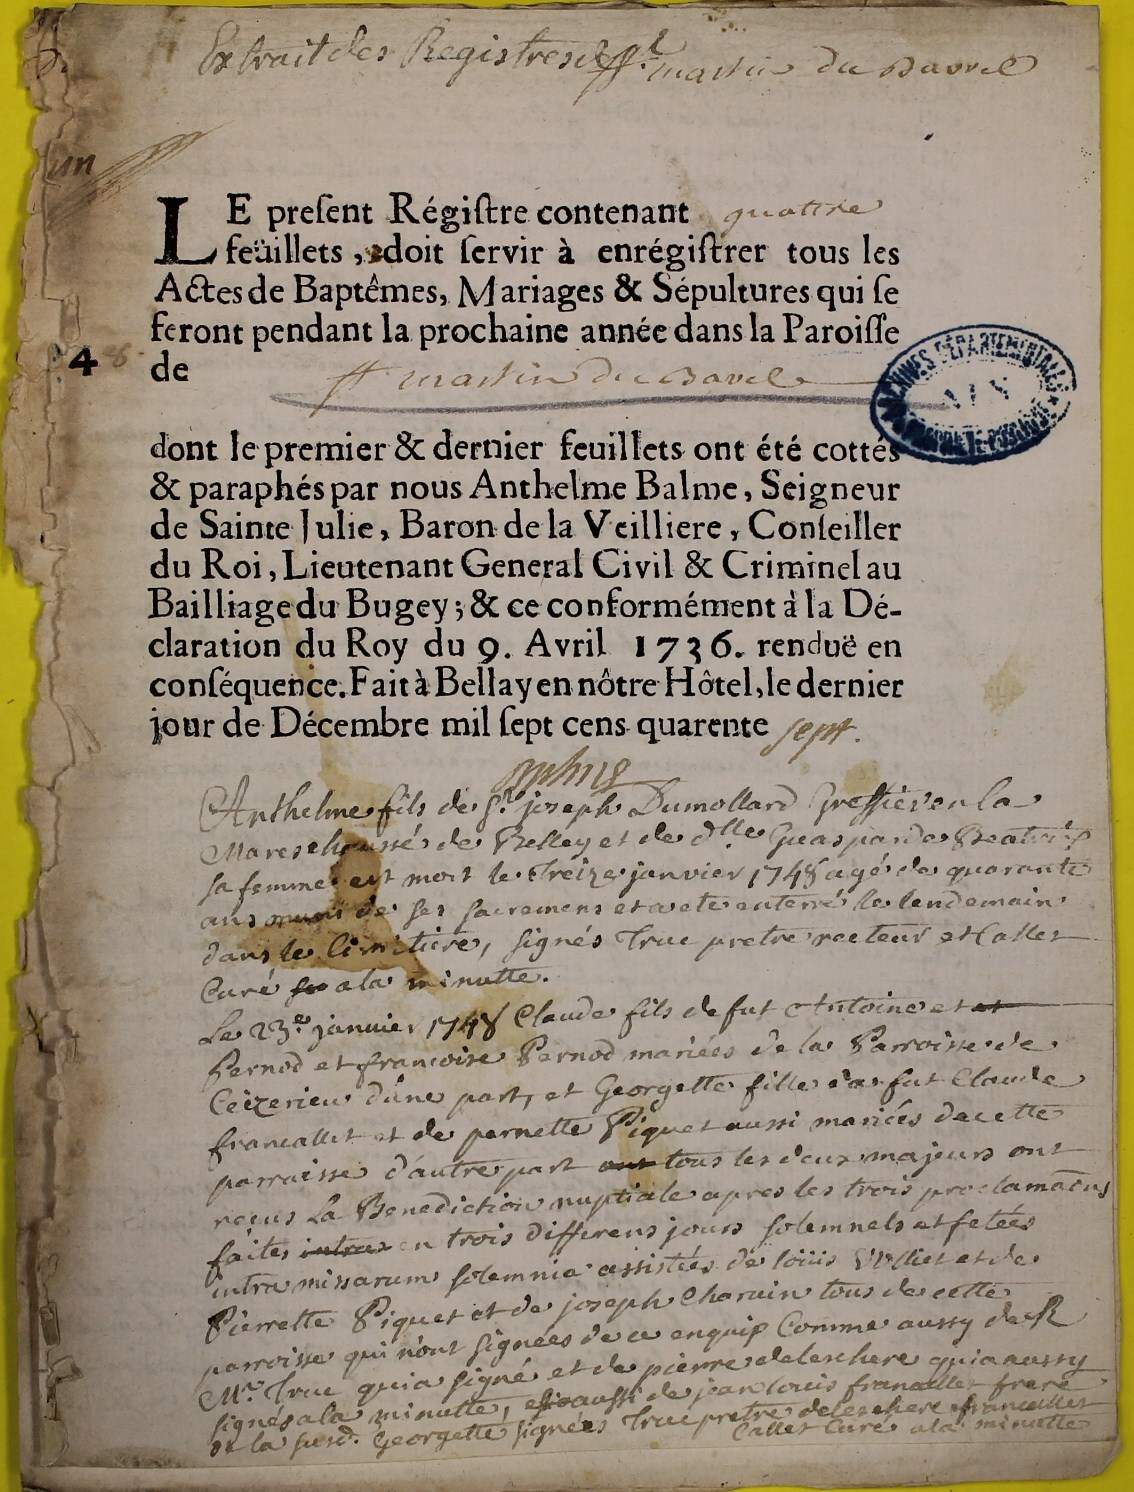 Extrait des Registres de St. martin du Bavel
un
LE preſent Régiſtre contenant quattre
feüillets, doit ſervir à enrégiſtrer tous les
Actes de Baptêmes, Mariages & Sépultures qui ſe
feront pendant la prochaine année dans la Paroiſſe
4
de St martin du Bavel
ARCHIVES DÉPARTEMENTALES
AIN
dont le premier & dernier feuillets ont été cottés
& paraphés par nous Anthelme Balme, Seigneur
de Sainte Julie, Baron de la Veilliere, Conſeiller
du Roi, Lieutenant General Civil & Criminel au
Bailliage du Bugey; & ce conformément à la Dé-
claration du Roy du 9. Avril 1736. renduë en
conſéquence. Fait à Bellay en nôtre Hôtel, le dernier
jour de Décembre mil ſept cens quarente sept.
Anthelme fils de Sr. joseph Dumollard Greffier en la
Mareschaussé de Belley et de dlle. Guasparde Beatrix
sa femme est mort le Treize janvier 1748 agé de quarante
ans muni de ses sacremens et a ete enterré le lendemain
dans le Cimetiere, signés Truc pretre recteur et Callet
Curé a la minutte.
Le 23e. janvier 1748 Claude fils de fut Antoine et
Pernod et francoise Pernod mariées de la Parroisse de
Ceizerieu d'une part, et Georgette fille de fut Claude
francallet et de pernette Piquet aussi mariés de cette
parroisse d'autre part tous les deux majeurs ont
reçus La Benediction nuptiale apres les trois proclamaõns
faites en trois differens jours solemnels et fetées
intra missarum solemnia assistées de loüis Vulliet et de
Pierrette Piquet et de joseph Charvin tous de cette
parroisse qui n'ont signees de ce enquis Comme aussy de R
Mre. Truc qui a signé et de pierre deleschere qui a aussy
signés a la minutte, aussi de jean louis francallet frere
de la susd. Georgette signées Truc pretre deleschere francallet
Callet Curé a la minutte